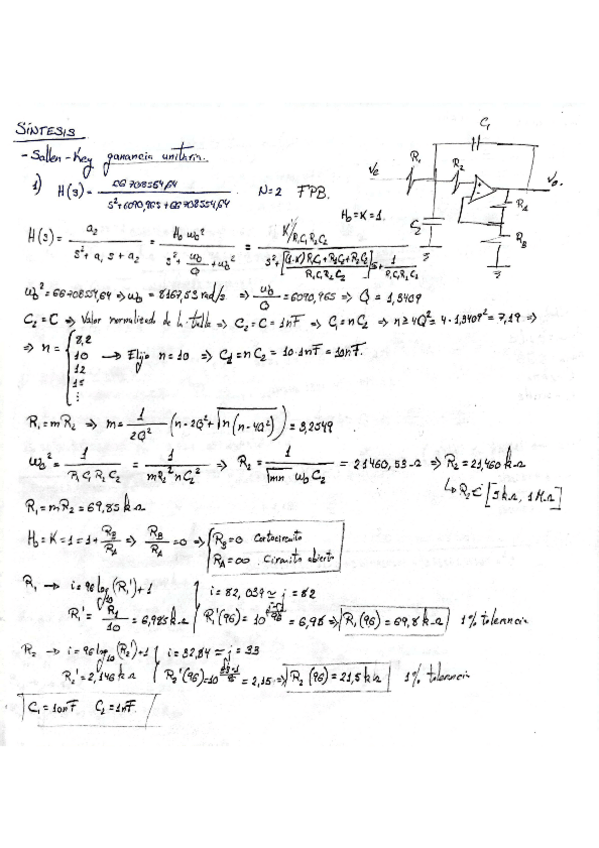 SÍNTESIS
- Sallen-Key ganancia unitaria.
1) H(s) = 66708554,64 / (s² + 6090,965 s + 66708554,64) N=2 FPB.
H₀ = K = 1.
C₁
R₁
R₂
Ve
Vo.
C₂
R_A
R_B
H(s) = a₂ / (s² + a₁s + a₂) = H₀ ω₀² / (s² + (ω₀/Q) s + ω₀²) = (K/R₁C₁R₂C₂) / (s² + [((1-K)R₁C₁ + R₁C₂ + R₂C₂) / (R₁C₁R₂C₂)] s + 1/(R₁C₁R₂C₂))
ω₀² = 66708554,64 ⇒ ω₀ = 8167,53 rad/s ⇒ ω₀/Q = 6090,965 ⇒ Q = 1,3409
C₂ = C ⇒ Valor normalizado de la tabla ⇒ C₂ = C = 1nF ⇒ C₁ = nC₂ ⇒ n ≥ 4Q² = 4·1,3409² = 7,19 ⇒
⇒ n = { 8,2
10 → Elijo n = 10 ⇒ C₁ = nC₂ = 10·1nF = 10nF.
12
15
⋮
R₁ = mR₂ ⇒ m = 1/(2Q²) (n - 2Q² + √(n(n-4Q²))) = 3,2549
ω₀² = 1/(R₁C₁R₂C₂) = 1/(mR₂² nC₂²) ⇒ R₂ = 1/(√(mn) ω₀ C₂) = 21460,53 Ω ⇒ R₂ = 21,460 kΩ
↳ R₂ ∈ [5kΩ, 1MΩ]
R₁ = mR₂ = 69,85 kΩ
H₀ = K = 1 = 1 + R_B/R_A ⇒ R_B/R_A = 0 ⇒ { R_B = 0 Cortocircuito
R_A = ∞ Circuito abierto
R₁ → i = 96 log₁₀(R₁') + 1 { i = 82,039 ≃ j = 82
R₁' = R₁/10 = 6,985 kΩ R₁'(96) = 10^((j-1)/96) = 6,98 ⇒ R₁(96) = 69,8 kΩ 1% tolerancia
R₂ → i = 96 log₁₀(R₂') + 1 { i = 32,84 ≃ j = 33
R₂' = 2,146 kΩ R₂'(96) = 10^((33-1)/96) = 2,15 ⇒ R₂(96) = 21,5 kΩ 1% tolerancia
C₁ = 10nF C₂ = 1nF.